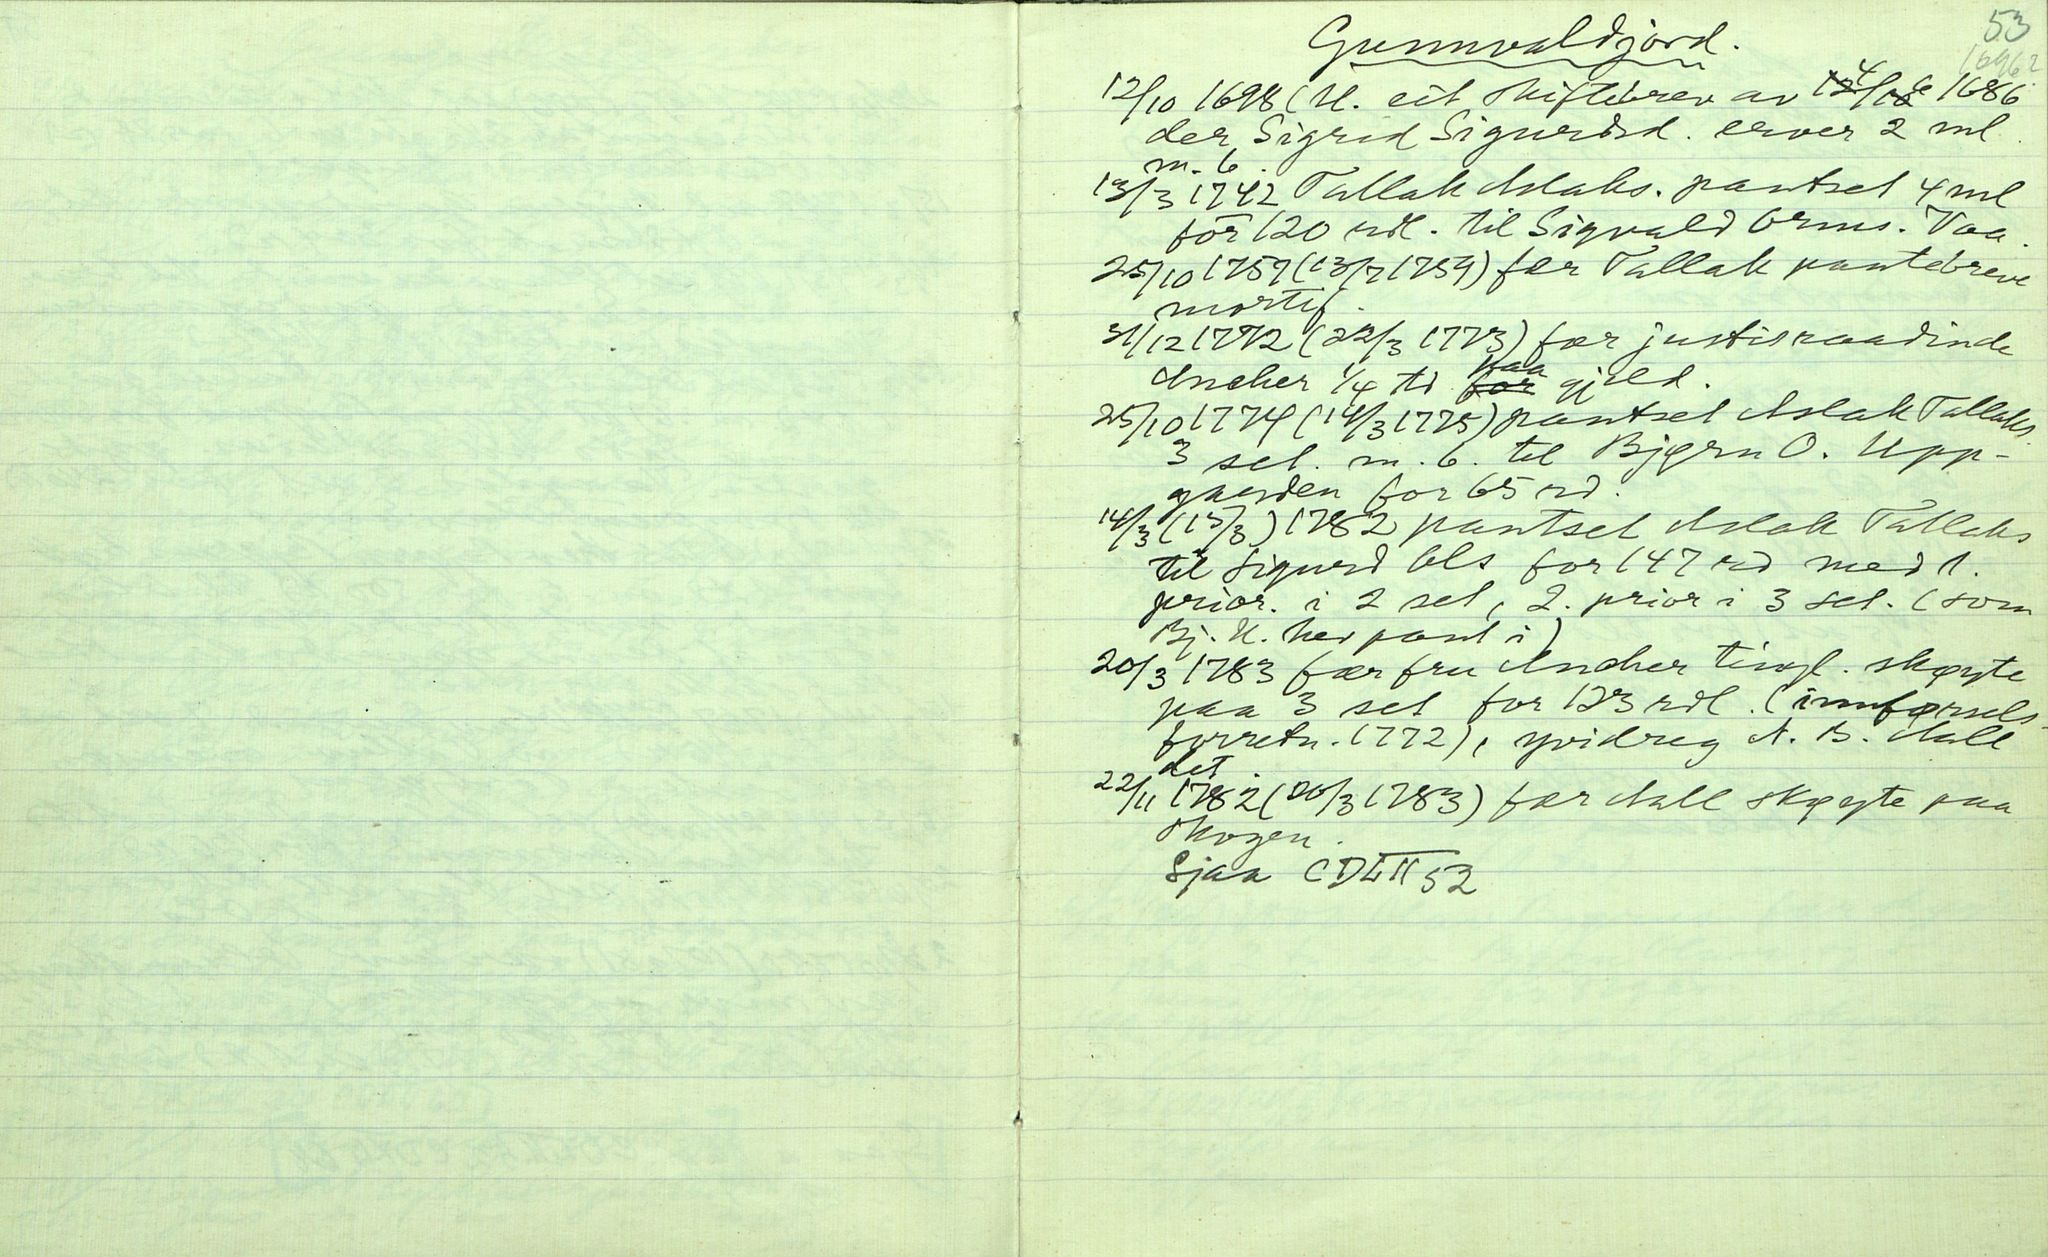 53
Gunnvaldjord.
12/10 1698 (U. eit skiftebrev av 4/6 1686
der Sigrid Sigurdsd. erver 2 ml
m. b.
13/3 1742 Tallak Aslaks. pantset 4 ml
for 120 rdl. til Sigvald Orms. Vaa.
25/10 1757 (13/7 1759) fær Tallak pantebreve
mortif.
31/12 1772 (22/3 1773) fær justisraadinde
Ancher 1/4 td ~~for~~ paa gjeld.
25/10 1774 (14/3 1775) pantset Aslak Tallaks.
3 set. m. b. til Bjørn O. Upp-
gaarden for 65 rd.
14/3 (15/3) 1782 pantset Aslak Tallaks
til Sigurd Ols for 147 rd med 1.
prior. i 2 set, 2. prior i 3 set. (som
Bj. U. hev pant i)
20/3 1783 fær fru Ancher tingl. skøyte
paa 3 set for 123 rdl. (innførsels-
forretn. 1772), yvidreg A. B. Aall
det.
22/11 1782 (20/3 1783) fær Aall skøyte paa
skogen.
Sjaa CDLII 52